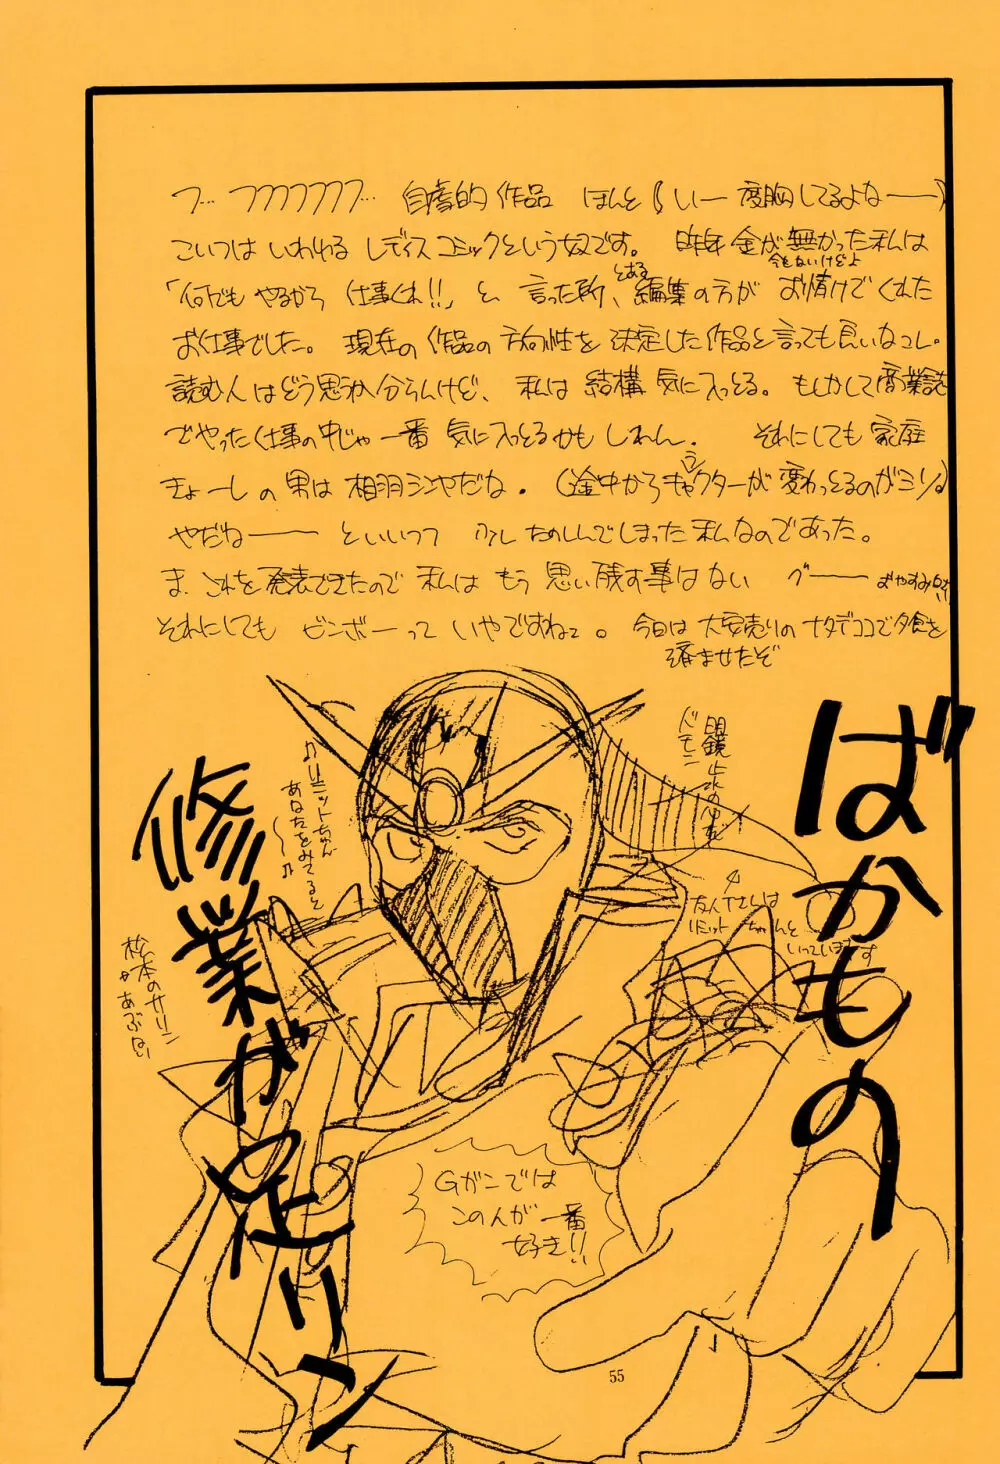 フ… フフフフフフフ… 自虐的作品 ほんと(いー度胸してるよなーー)
こいつはいわゆるレディスコミックという奴です。 昨年金が無かった私は
今もないけどよ
「何でもやるから仕事くれ!!」と 言った所、とある編集の方がお情けでくれた
お仕事でした。 現在の作品の方向性を決定した作品と言っても良いなコレ。
読む人はどう思うか分らんけど、 私は結構気に入っとる。 もしかして商業誌
でやった仕事の中じゃ一番気に入っとるかもしれん。 それにしても家庭
きょーしの男は相羽シンヤだな。(途中からキャラクターが変わっとるのがミソ。)
やだねーー といいつつ 少したのしんでしまった私なのであった。
ま、これを発表できたので私はもう思い残す事はない グーーー おやすみなさい
それにしても ビンボーって いやですねェ。 今日は大安売りのナタデココで夕食を
済ませたぞ
ばかもの
修業が足リン
明鏡止水の
ドモン
♪リミットちゃん
あなたをみてるぞ
〜♪
友人
は
リミットちゃんと
いっています
松本のサリン
があぶない
Gガンでは
この人が一番
好き!!
55